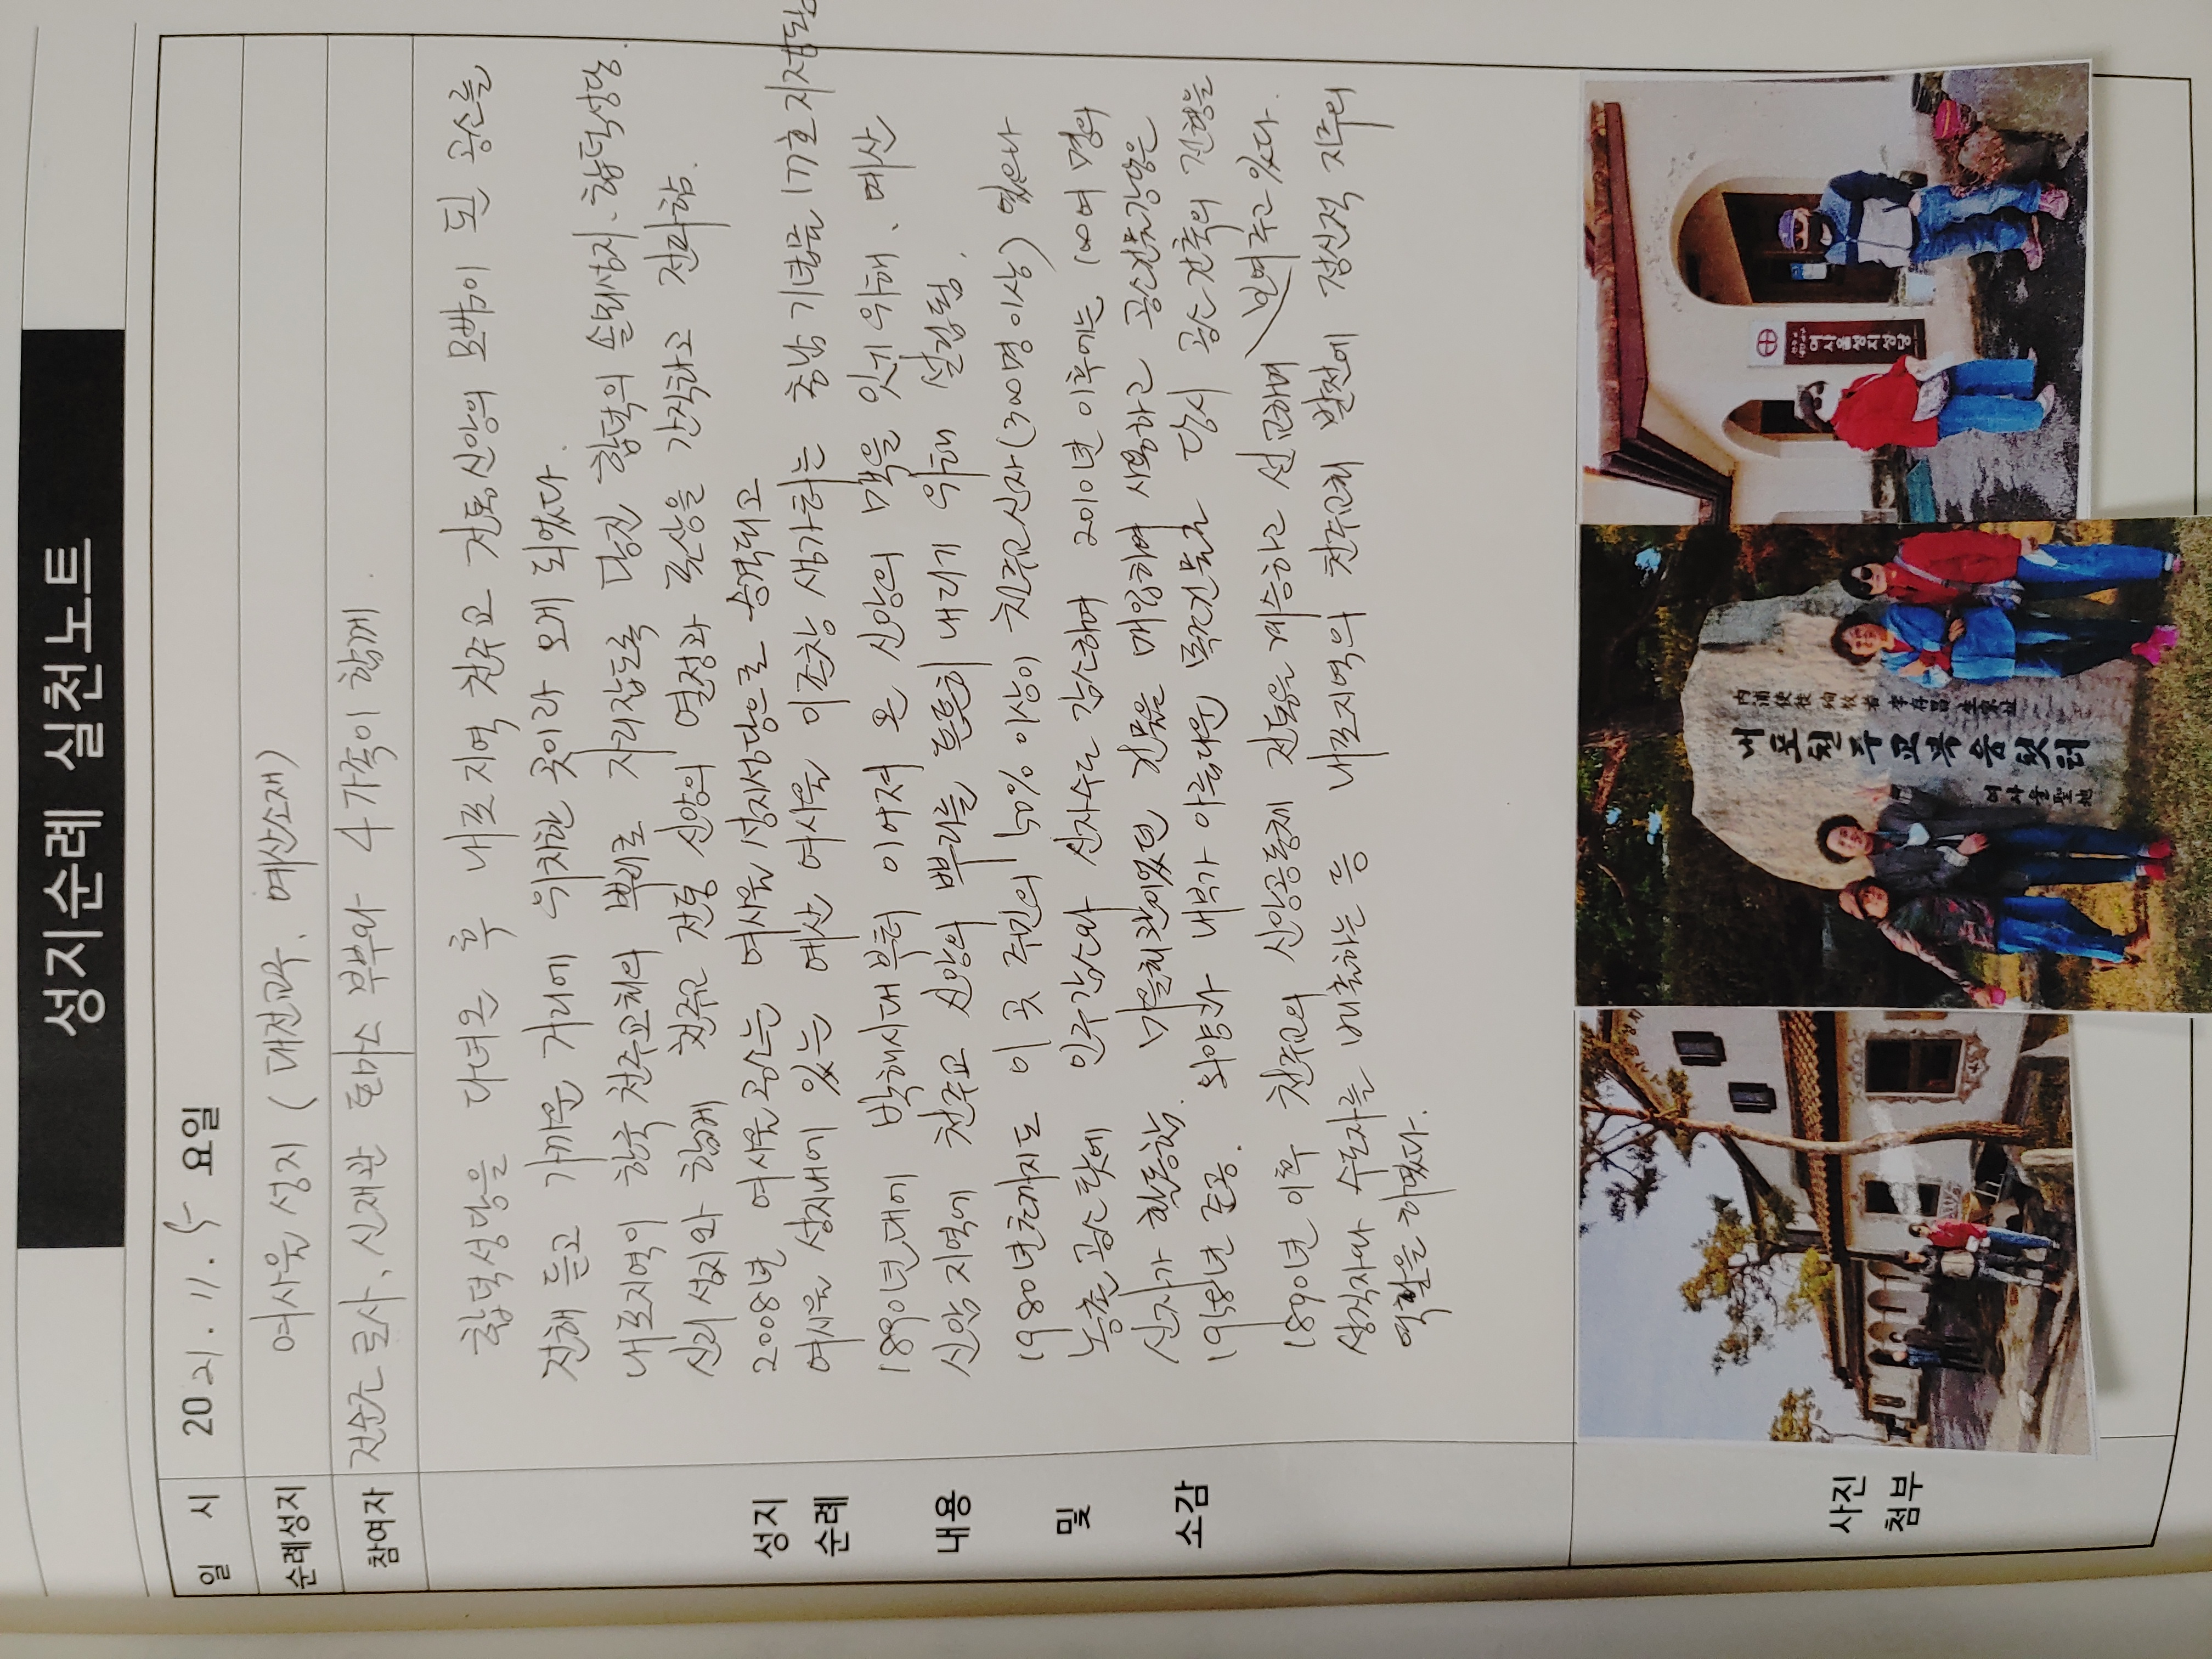 성지순례 실천노트
일 시 2021. 11. 5 요일
순례성지 여사울 성지 (대전교구, 예산소재)
참여자 전순근 로사, 신재관 회가스 부부와 4가족이 함께.
성지
순례
내용
및
소감
합덕성당을 다녀온 후 내포지역 천주교 전통신앙의 모태이 된 공소를
전해 듣고 가까운 거리에 위치한 곳이라 오게 되었다.
내포지역이 한국 천주교회의 뿌리로 자리잡도록 당진 합덕의 솔뫼성지, 합덕성당.
신리성지와 함께 천주교 전통 신앙의 열정과 표상을 간직하고 전파함.
2008년 여사울공소는 여사울성지성당으로 승격되고
여사울 성지내에 있는 예산 여사울 이존창 생가터는 충남 기념물 177호 지정됨
1890년대에 박해시대부터 이어져 온 신앙의 맥을 잇기 위해, 예산
신암지역에 천주교 신앙의 뿌리를 튼튼히 내리기 위해 설립됨.
1980년초까지도 이 곳 주민의 50% 이상이 천주교신자(300명 이상)였으나
농촌공소탓에 인구감소와 신자수도 감소하며 2010년 이후에는 100여 명의
신자가 활동함. 마을회관이었던 건물을 매입하여 사용하고 공소건물강당은
1958년 준공. 외양과 내부가 아름다운 목조건물로 당시 공소 건축의 전형을
보여주고 있다.
1890년 이후 천주교의 신앙공동체 전통을 계승하고 선교하며
성직자와 수도자를 배출하는 등 내포지역의 천주교회 발전에 정신적 지주의
역할을 하였다.
사진
첨부
內浦使徒 李存昌 生家址
내포천주교복음첫터
여사울聖地
여사울성지성당